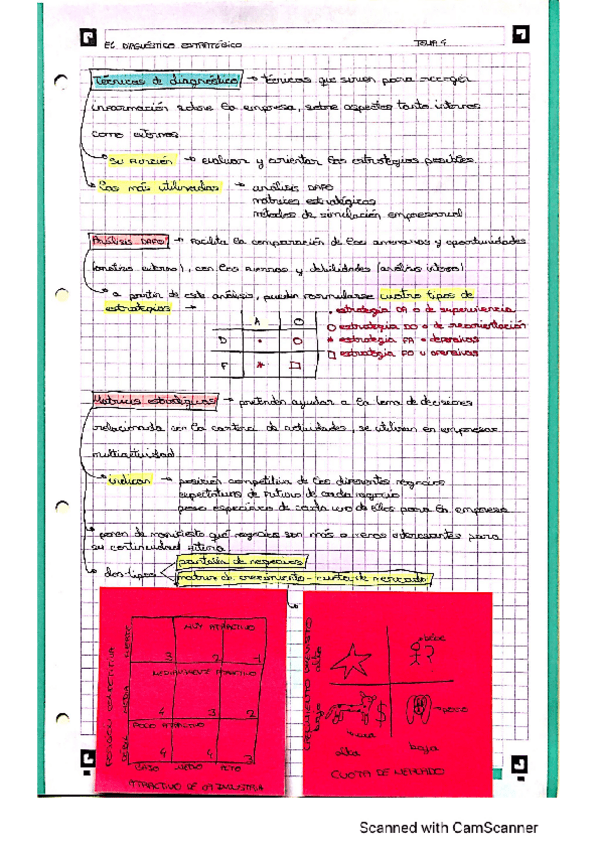 EL DIAGNÓSTICO ESTRATÉGICO TEMA 4
Técnicas de diagnóstico → técnicas que sirven para recoger
información sobre la empresa, sobre aspectos tanto internos
como externos
su función → evaluar y orientar las estrategias posibles
las más utilizadas → análisis DAFO
matrices estratégicas
métodos de simulación empresarial
Análisis DAFO → facilita la comparación de las amenazas y oportunidades
(análisis externo), con las fuerzas y debilidades (análisis interno)
a partir de este análisis, pueden formularse cuatro tipos de
estrategias →
A O
D
F
estrategia DA o de supervivencia
estrategia DO o de reorientación
estrategia FA o defensivas
estrategia FO u ofensivas
Matrices estratégicas → pretenden ayudar a la toma de decisiones
relacionada con la cartera de actividades, se utilizan en empresas
multiactividad
indican → posición competitiva de los diferentes negocios
expectativas de futuro de cada negocio
peso específico de cada uno de ellos para la empresa
ponen de manifiesto qué negocios son más o menos interesantes para
su continuidad
dos tipos
pantalla de negocios
matriz de crecimiento - cuota de mercado
MUY ATRACTIVO
3 2 1
MEDIANAMENTE ATRACTIVO
4 3 2
POCO ATRACTIVO
4 4 3
BAJO MEDIO ALTO
ATRACTIVO DE LA INDUSTRIA
POSICIÓN COMPETITIVA
MEDIA
alto
bajo
bebé
perro
vaca
alta baja
CUOTA DE MERCADO
Scanned with CamScanner